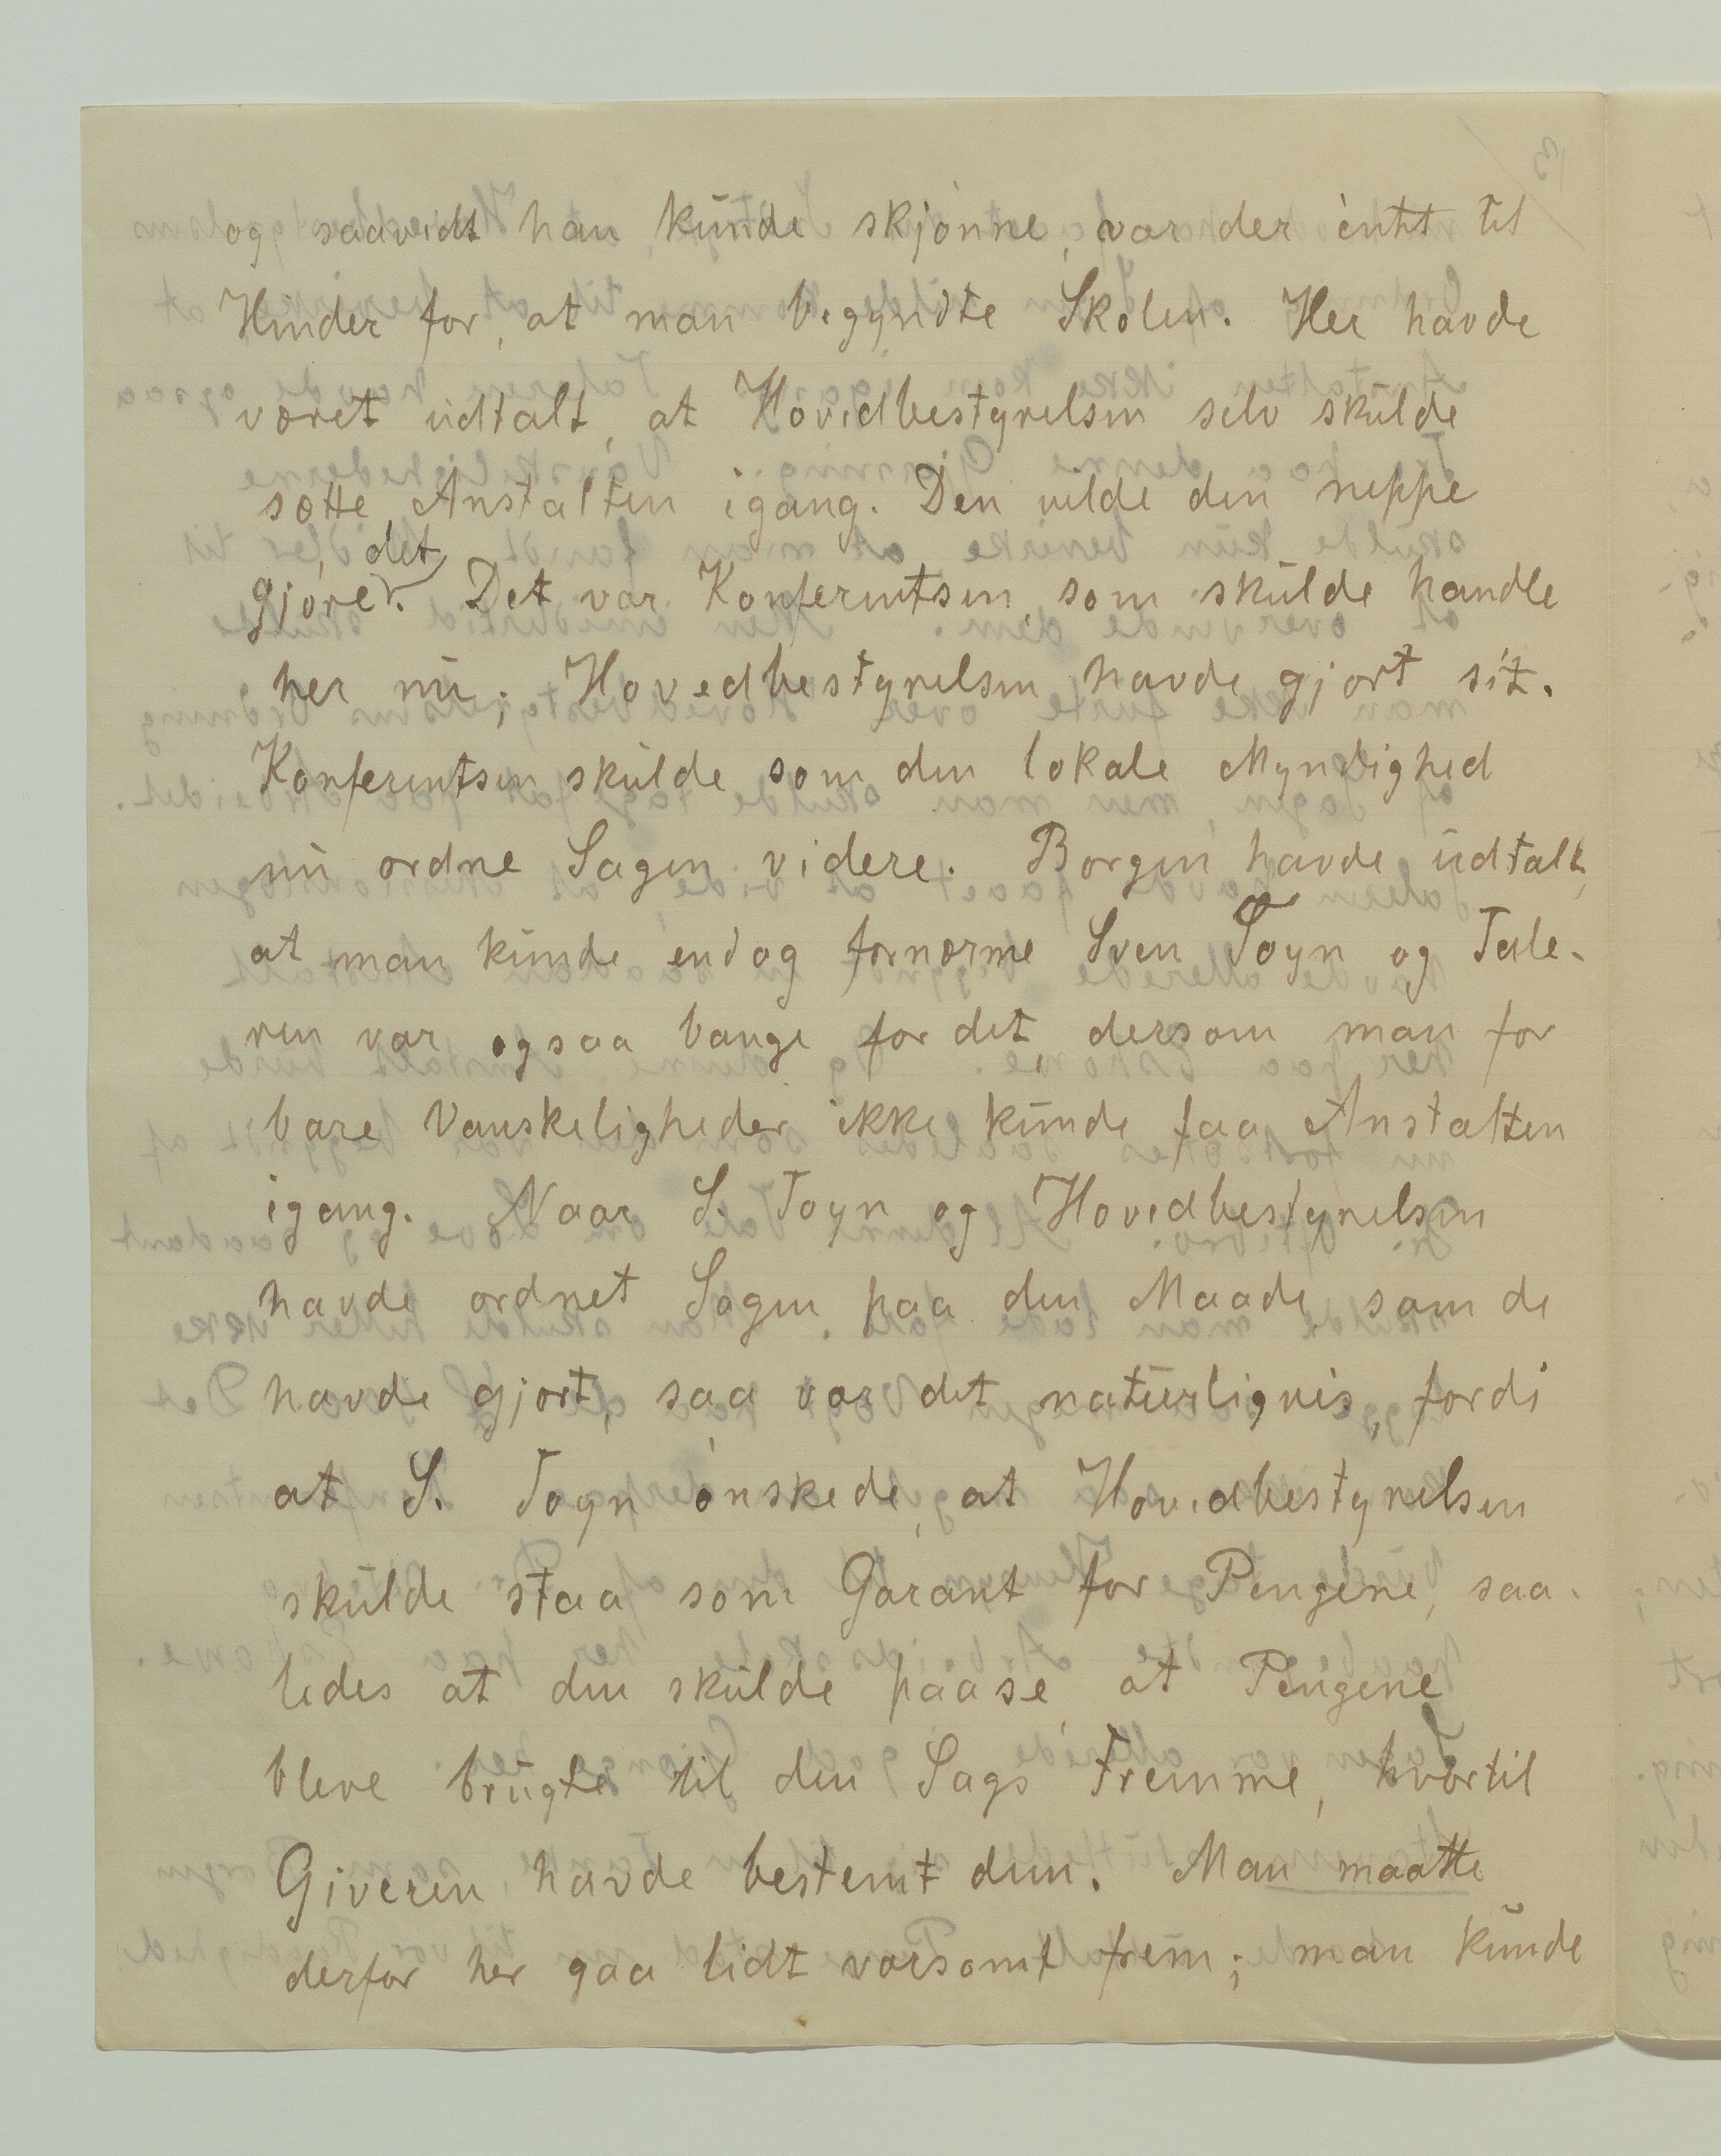 og saavidt han kunde skjønne, var der intet til
Hinder for, at man begyndte Skolen. Her havde
været udtalt, at Hovedbestyrelsen selv skulde
sætte Anstalten igang. Den vilde den neppe
gjøre det. Det var Konferentsen, som skulde handle
her nu; Hovedbestyrelsen havde gjort sit.
Konferentsen skulde som den lokale Myndighed
nu ordne Sagen videre. Borgen havde udtalt,
at man kunde endog fornærme Sven Foyn og Tale-
ren var ogsaa bange for det, dersom man for
bare Vanskeligheder ikke kunde faa Anstalten
igang. Naar S. Foyn og Hovedbestyrelsen
havde ordnet Sagen paa den Maade, som de
havde gjort, saa var det naturligvis, fordi
at S. Foyn ønskede, at Hovedbestyrelsen
skulde staa som Garant for Pengene, saa-
ledes at den skulde paase, at Pengene
bleve brugte til den Sags Fremme, hvortil
Giveren havde bestemt dem. Man maatte
derfor her gaa lidt varsomt frem; man kunde